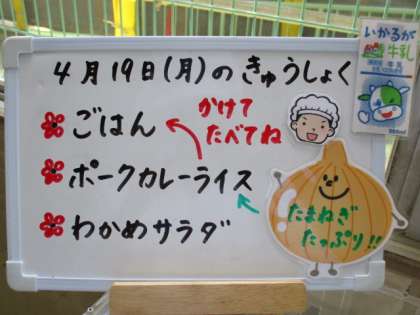 4月19日(月)のきゅうしょく
ごはん
かけて
たべてね
ポークカレーライス
わかめサラダ
たまねぎ
たっぷり!!
いかるが
牛乳